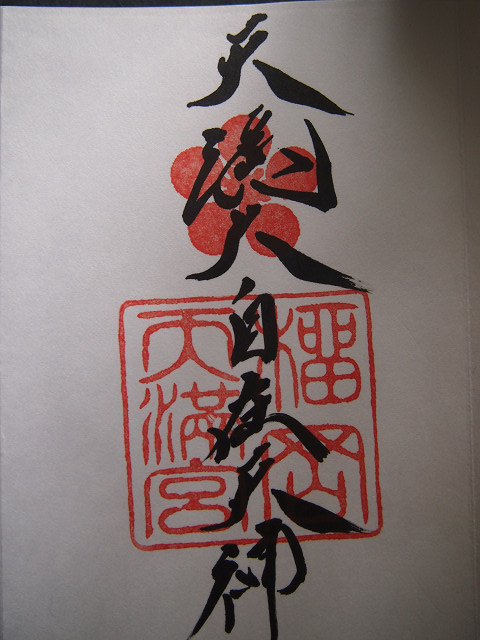 天満大自在天神
榴岡
天満宮